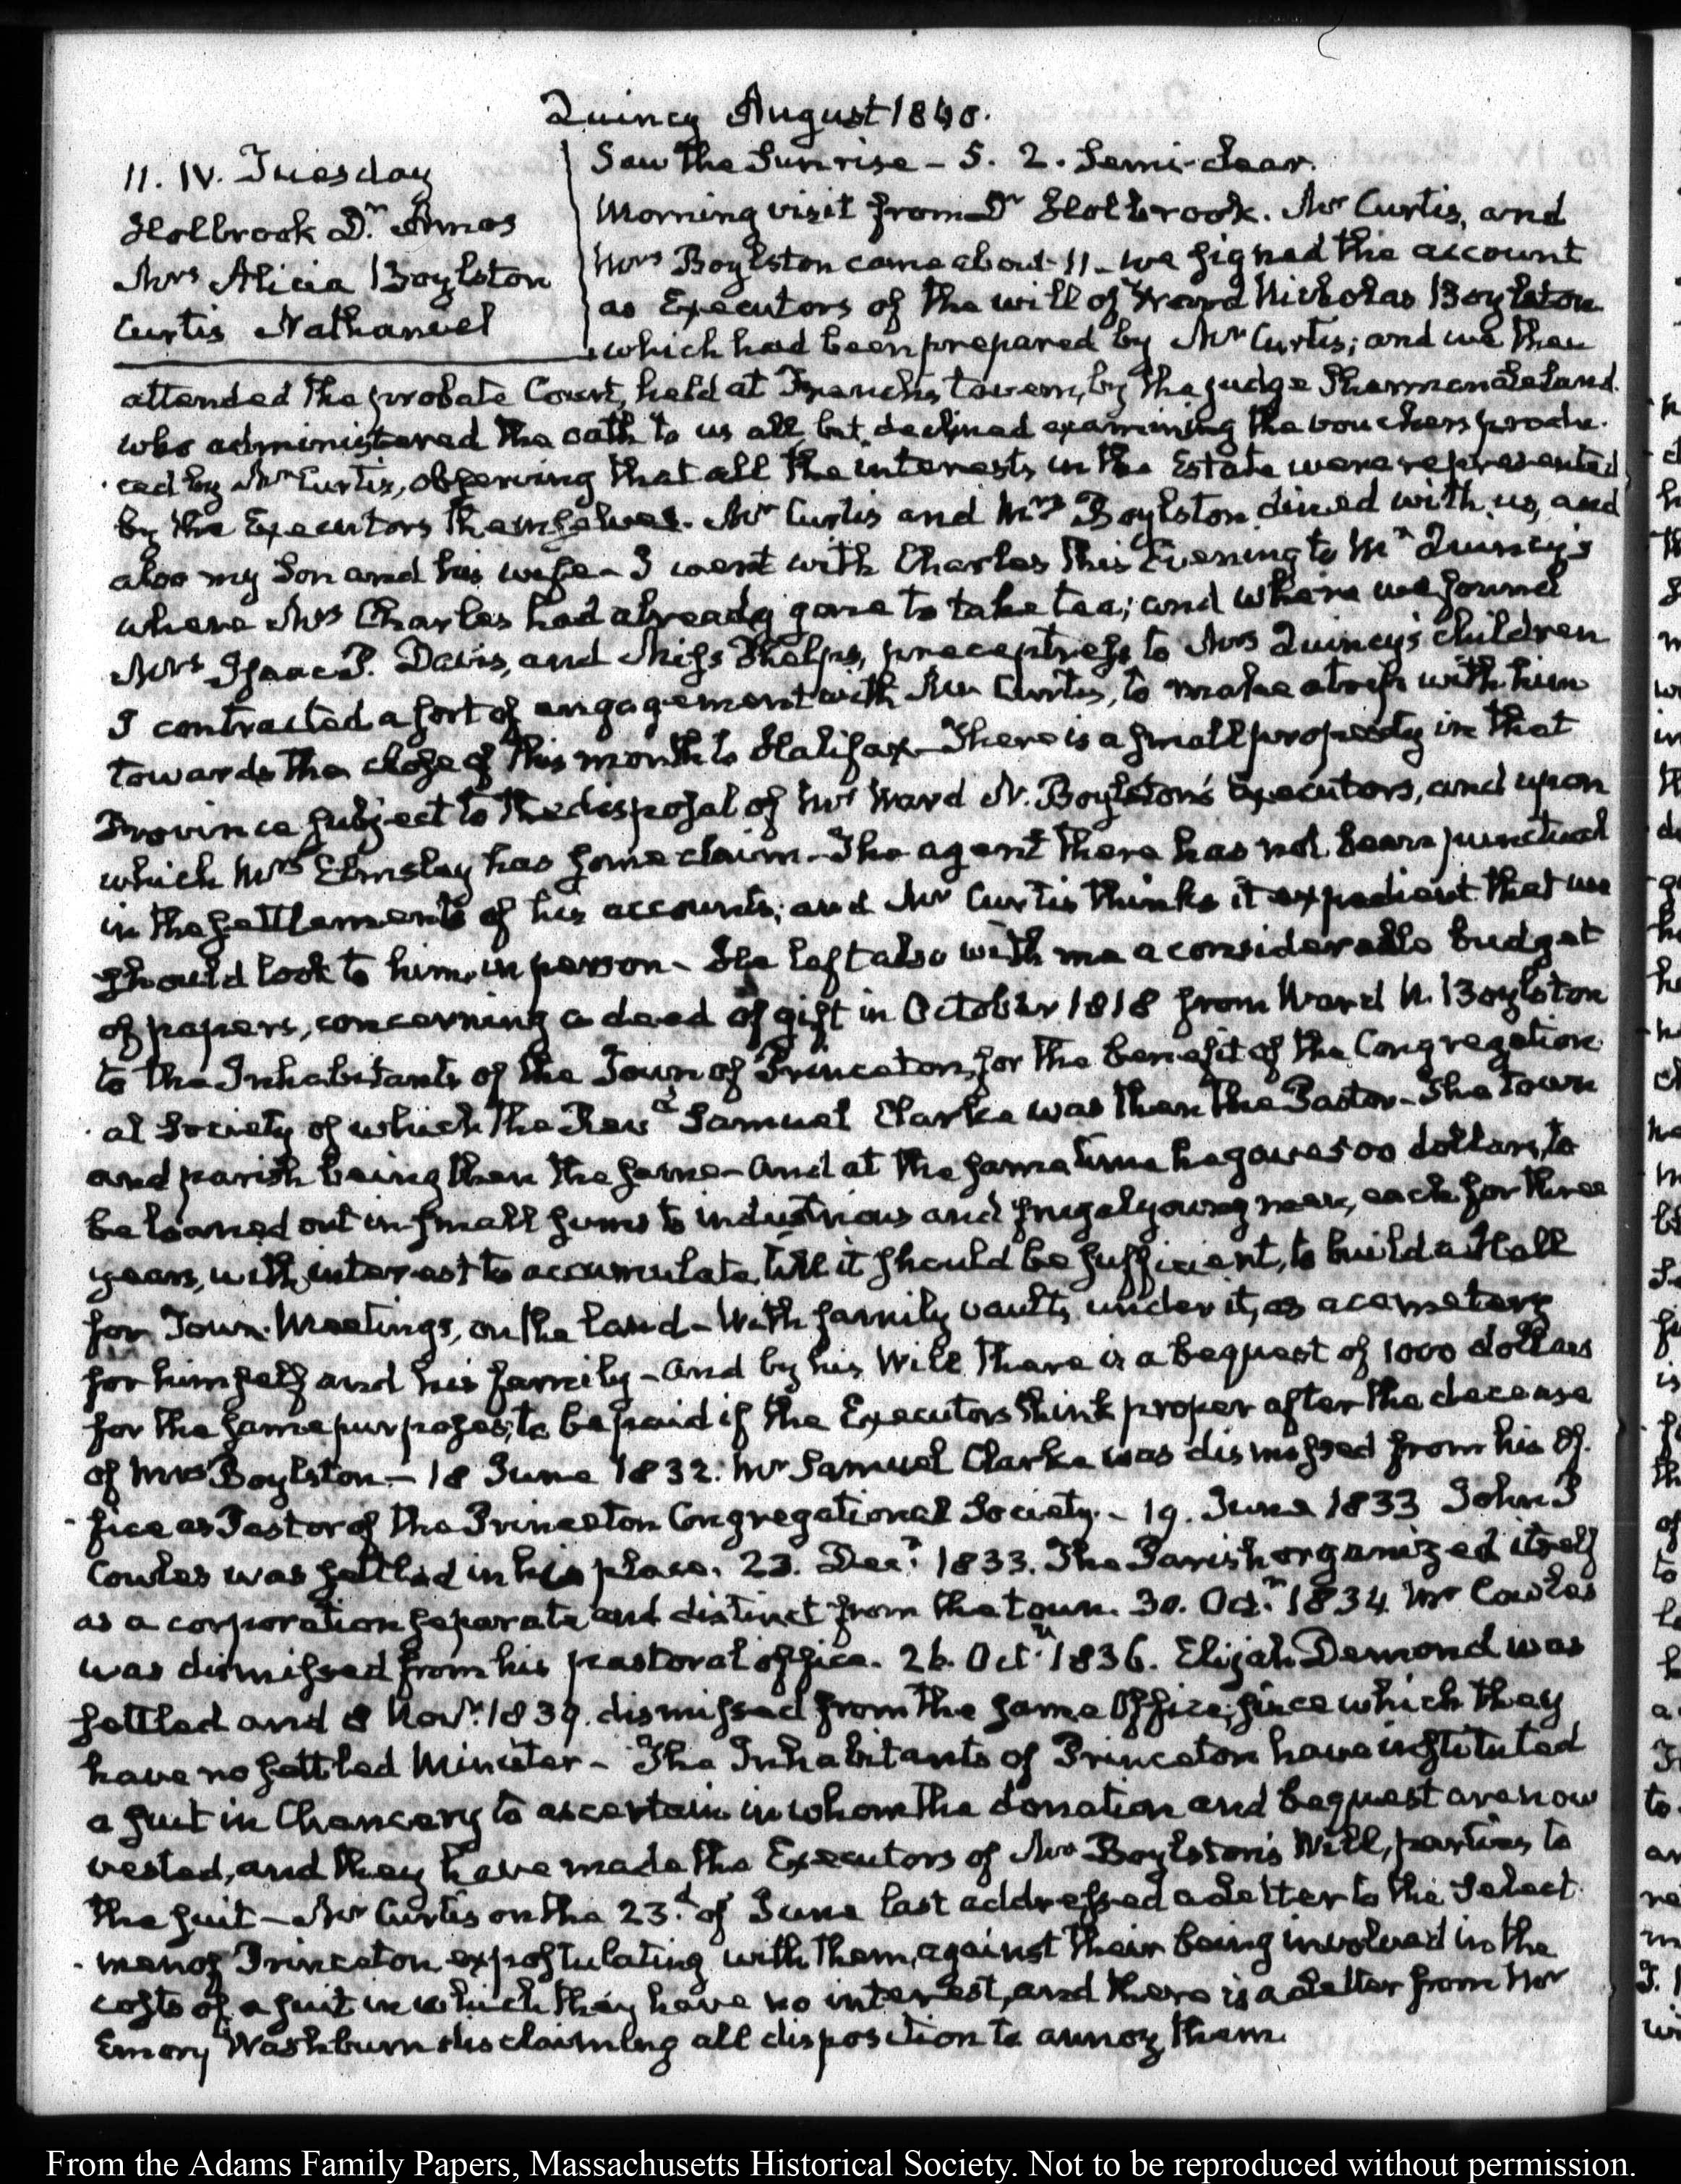 Quincy August 1840.
11. IV. Tuesday
Holbrook Dr. Amos
Mrs Alicia Boylston
Curtis Nathaniel
Saw the Sun rise – 5. 2. Semi-clear.
Morning visit from Dr Holbrook. Mr Curtis, and
Mrs Boylston came about 11 – we signed the account
as Executors of the will of Ward Nicholas Boylston
which had been prepared by Mr Curtis; and we then
attended the probate Court, held at French's tavern, by the judge Sherman Leland.
who administered the oath to us all, but declined examining the vouchers produ-
ced by Mr Curtis, observing that all the interests in the Estate were represented
by the Executors themselves. Mr Curtis and Mrs Boylston dined with us, and
also my Son and his wife – I went with Charles this Evening to Mr Quincy's
where Mrs Charles had already gone to take tea; and where we found
Mrs Isaac P. Davis, and Miss Phelps, preceptress to Mrs Quincy's children
I contracted a sort of engagement with Mr Curtis, to make a trip with him
towards the close of this month to Halifax – There is a small property in that
Province subject to the disposal of Mr Ward N. Boylston's Executors, and upon
which Mrs Elmsley has some claim – The agent there has not been punctual
in the settlements of his accounts; and Mr Curtis thinks it expedient that we
should look to him, in person – He left also with me a considerable budget
of papers, concerning a deed of gift in October 1818 from Ward N. Boylston
to the Inhabitants of the Town of Princeton, for the benefit of the Congregation-
al Society of which the Revd Samuel Clarke was then the Pastor – The town
and parish being then the same – And at the same time he gave 500 dollars, to
be loaned out in small sums to industrious and frugal young men, each for three
years, with interest to accumulate, till it should be sufficient, to build a Hall
for Town-Meetings, on the land – With family vaults under it, as a cemetery
for himself and his family – And by his Will there is a bequest of 1000 dollars
for the same purposes; to be paid if the Executors think proper after the decease
of Mrs Boylston – 18 June 1832. Mr Samuel Clarke was dismissed from his of-
fice as Pastor of the Princeton Congregational Society. – 19. June 1833 John P
Cowles was settled in his place. 23. Decr. 1833. The Parish organized itself
as a corporation separate and distinct from the town. 30. Octr. 1834. Mr Cowles
was dismissed from his pastoral office. 26. Octr. 1836. Elijah Demond was
settled and 8 Novr. 1839. dismissed from the same Office; since which they
have no settled Minister – The Inhabitants of Princeton have instituted
a suit in Chancery to ascertain in whom the donation and bequest are now
vested, and they have made the Executors of Mr Boylston's Will, parties to
the suit – Mr Curtis on the 23.d of June last addressed a Letter to the Select-
men of Princeton expostulating with them, against their being involved in the
costs of a suit in which they have no interest, and there is a Letter from Mr
Emory Washburn disclaiming all disposition to annoy them.
From the Adams Family Papers, Massachusetts Historical Society. Not to be reproduced without permission.